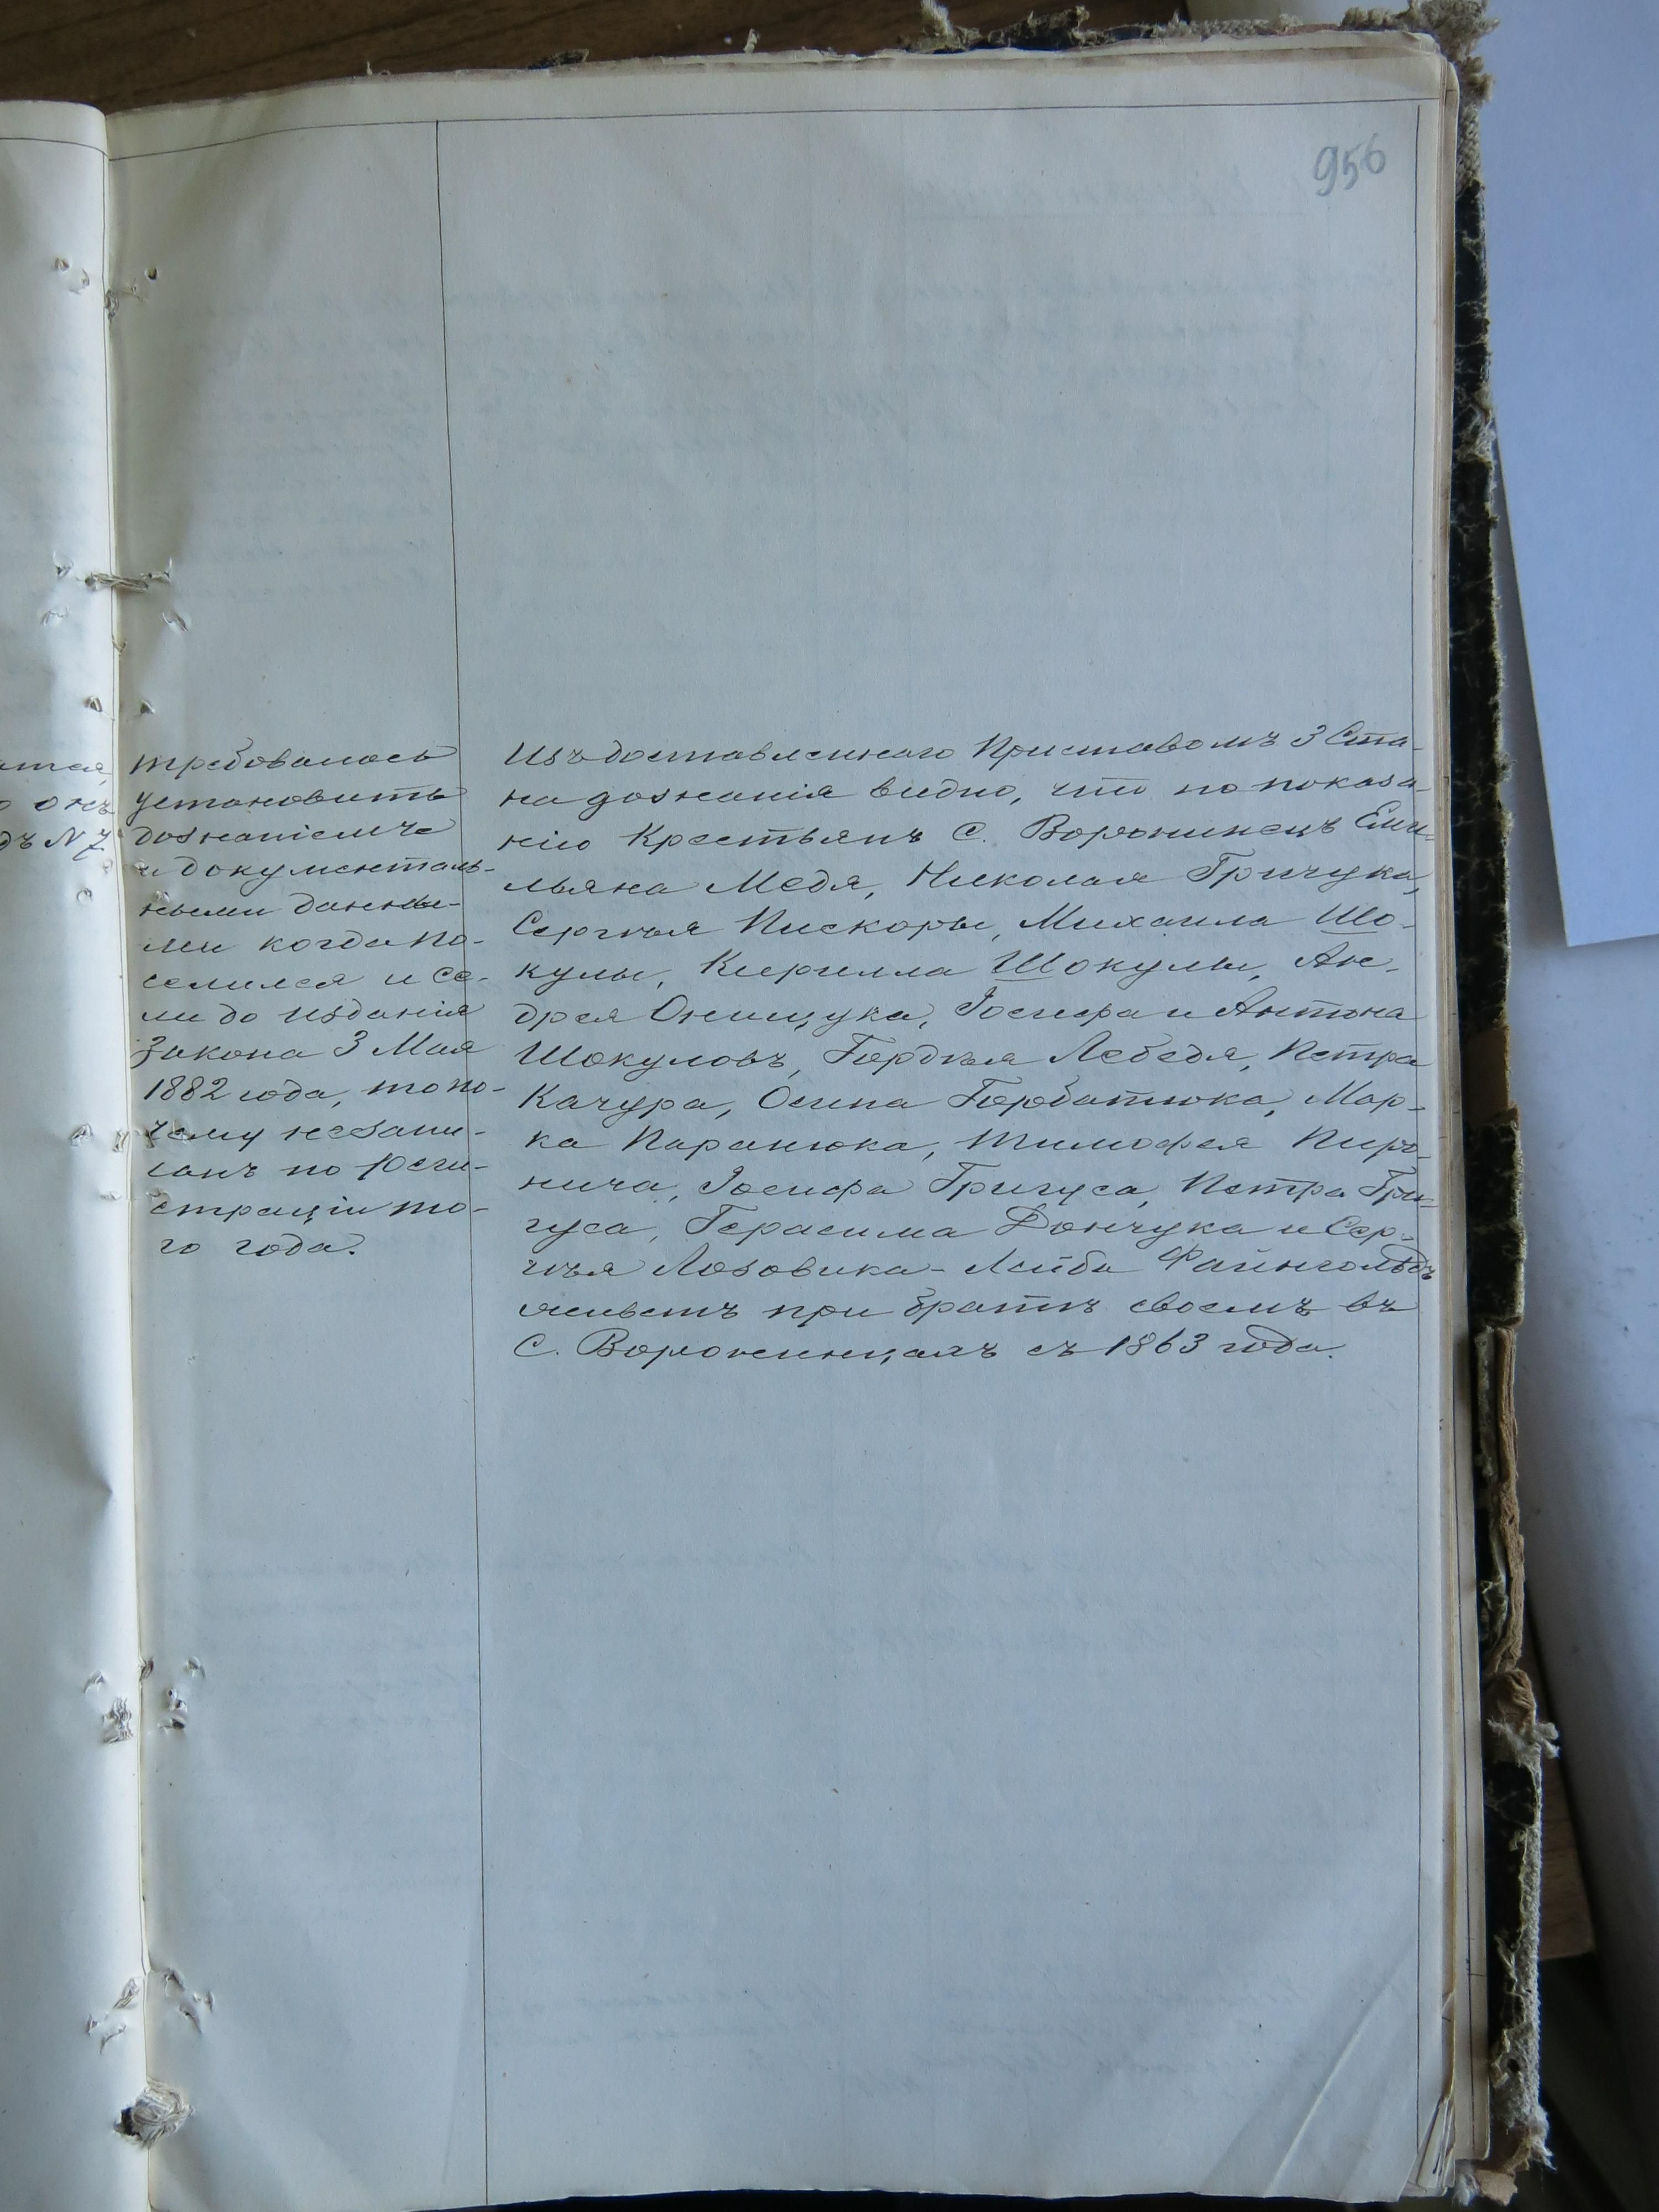 956
требовалось
установить
дознаніемъ
и документаль-
ными данны-
ми когда по-
селился и ес-
ли до изданія
Закона 3 Мая
1882 года, то по-
чему незапи-
санъ по Реги-
страціи то-
го года.
Изъ доставленнаго Приставомъ 3 Ста-
на дознанія видно, что по показа-
нію Крестьянъ С. Воронинецъ Еми-
льяна Медя, Николая Гричука,
Сергѣя Пискоры, Михаила Шо-
кулы, Кирилла Шокулы, Ан-
дрея Онищука, Іосифа и Антона
Шокуловъ, Гордѣя Лебедя, Петра
Качура, Осипа Горбатюка, Мар-
ка Паранюка, Тимофея Пиро-
нича, Іосифа Григуса, Петра Гри-
гуса, Герасима Дончука и Сер-
гѣя Лозовика - Лейба Файнгольдъ
живетъ при братѣ своемъ въ
С. Воронинцахъ съ 1863 года.